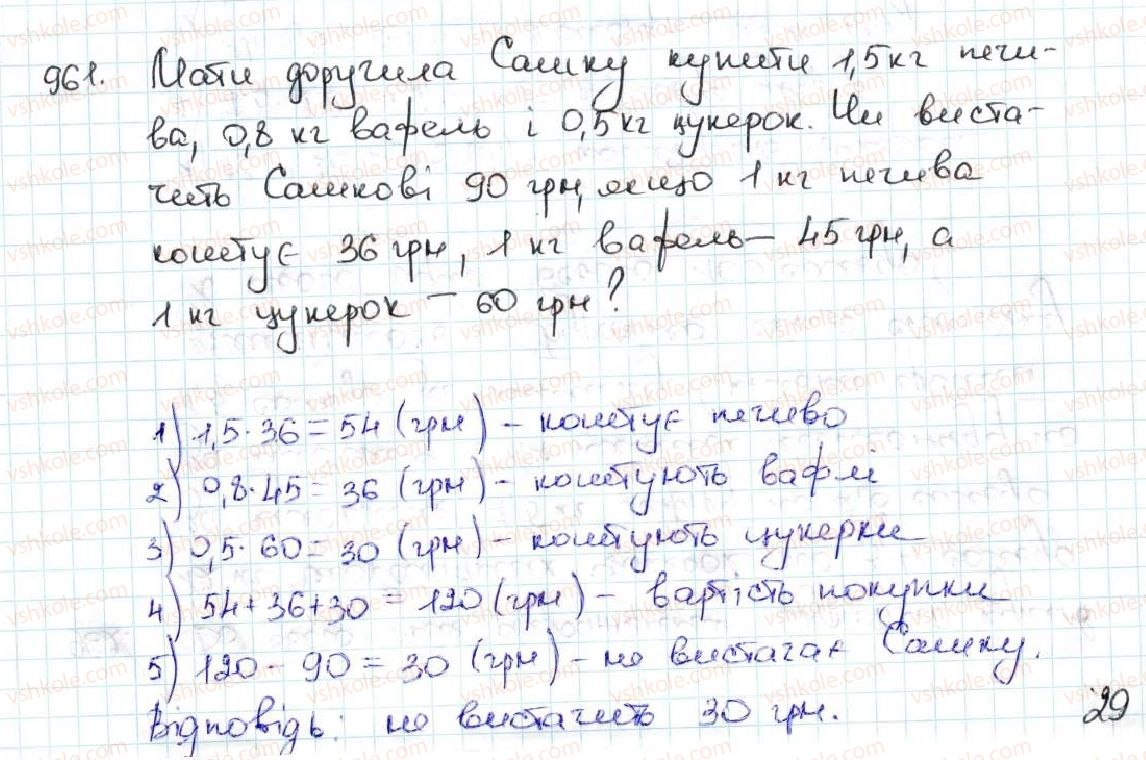 961. Мати доручила Сашку купити 1,5кг печи-
ва, 0,8 кг вафель і 0,5кг цукерок. Чи виста-
чить Сашкові 90 грн, якщо 1 кг печива
коштує 36 грн, 1 кг вафель – 45 грн, а
1 кг цукерок – 60 грн?
1) 1,5·36=54 (грн) – коштує печиво
2) 0,8·45=36 (грн) – коштують вафлі
3) 0,5·60=30 (грн) – коштують цукерки
4) 54+36+30=120 (грн) – вартість покупки
5) 120-90=30 (грн) – не вистачає Сашку.
Відповідь: не вистачить 30 грн.
29
vshkole.com